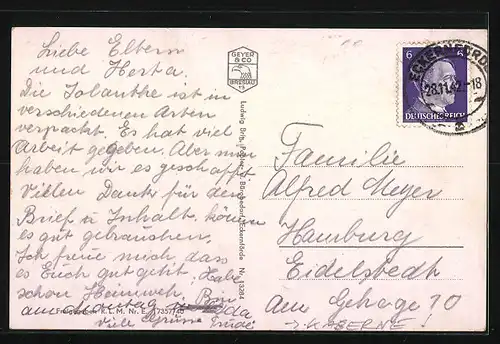 Liebe Eltern
und Herta.
Die Jolanthe ist in
verschiedenen Arten
verpackt. Es hat viel
Arbeit gegeben. Aber nun
haben wir es geschafft
Vielen Dank für den
Brief u Inhalt, können
es gut gebrauchen.
Ich freue mich, dass
es Euch gut geht. Habe
schon Heimweh. Bin
am Sonntag da
Viele Grüsse Trude
GEYER
& CO
BRESLAU
Ludwig
Eckernförde Nr. 13284
6 6
28.11.42-18
DEUTSCHES REICH
Familie
Alfred Meyer
Hamburg
Eidelstedt
Am Gehege 10
KASERNE!